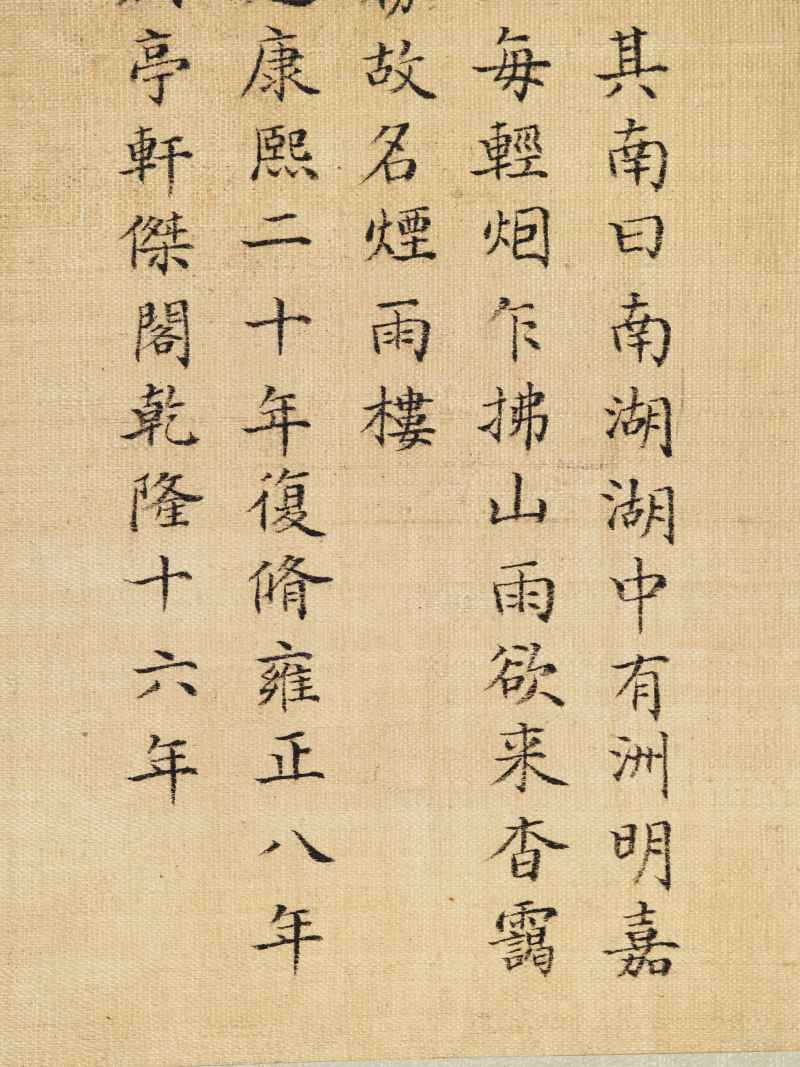 其南曰南湖湖中有洲明嘉
每輕烟乍拂山雨欲来杳靄
故名煙雨樓
康熙二十年復脩雍正八年
亭軒傑閣乾隆十六年